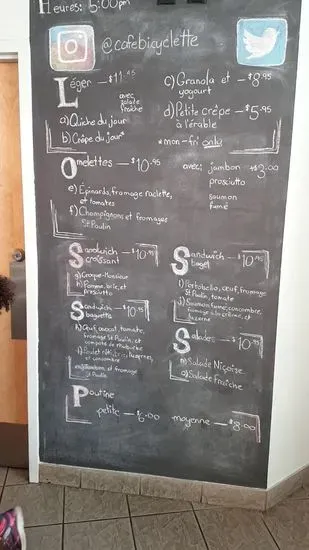 Heures: 5:00pm
@cafebicyclette
Léger — $11.45
avec
salade
fraîche
a) Quiche du jour
b) Crêpe du jour*
c) Granola et — $8.95
yogourt
d) Petite crêpe — $5.95
à l'érable
*mon-fri only
Omelettes — $10.95
e) Épinards, fromage raclette,
et tomates
f) Champignons et fromages
St. Paulin
avec: jambon +$3.00
prosciutto
saumon
fumé
Sandwich
croissant — $10.95
g) Croque-Monsieur
h) Pomme, brie, et
prosciutto
Sandwich
bagel — $10.95
i) Portobello, oeuf, fromage
St. Paulin, tomate
j) Saumon fumé, concombre,
fromage à la crème, et
luzerne
Sandwich
baguette — $10.95
tomate,
fromage St. Paulin, et
compote de rhubarbe
et concombre
et fromage
St. Paulin
Salades — $10.95
n) Salade Niçoise
o) Salade Fraîche
Poutine
petite — $6.00 moyenne — $8.00